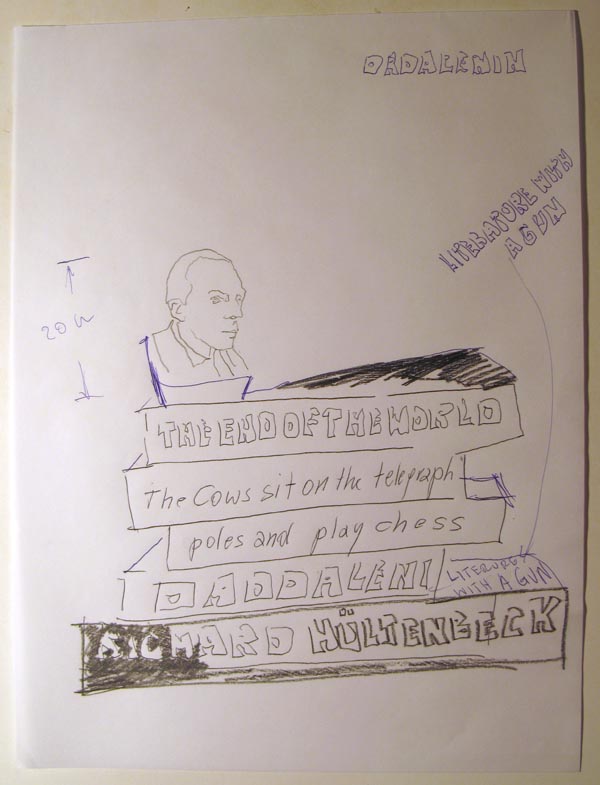 DADALENIN
LITERATURE WITH
A GUN
20
THE END OF THE WORLD
The Cows sit on the telegraph
poles and play chess
DADDALENI
WITH A GUN
HÜLTENBECK